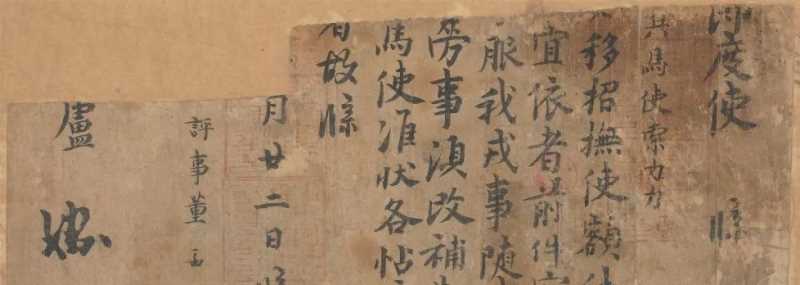 度使 牒
兵馬使索力力
移招撫使額
宜依者前件
服我戎事随
勞事湏改補
馬使准狀各帖
故牒
月廿二日牒
評事董
盧